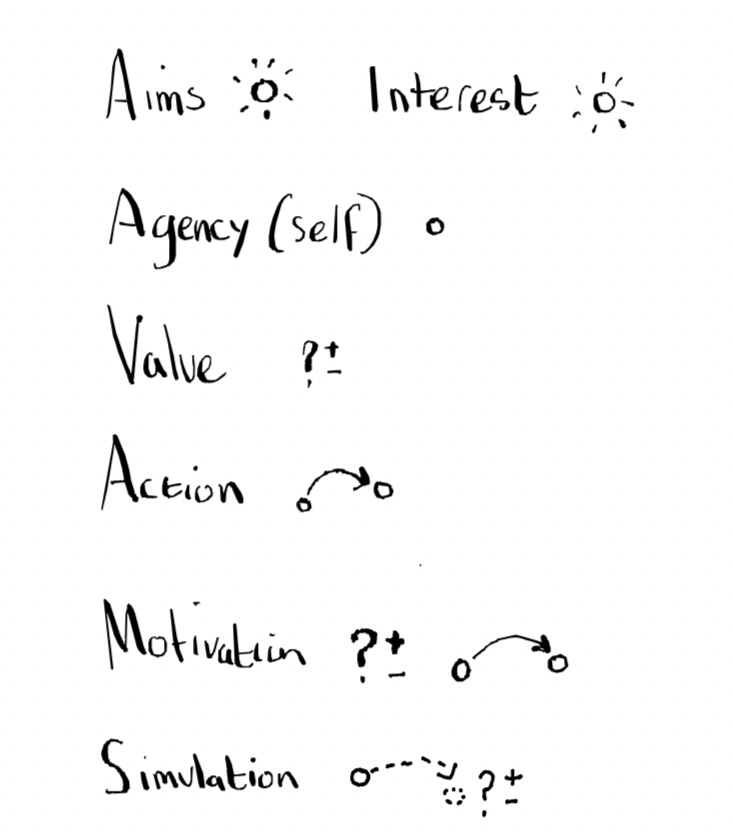 Aims Interest
Agency (self)
Value ?±
Action
Motivation ?±
Simulation ?±